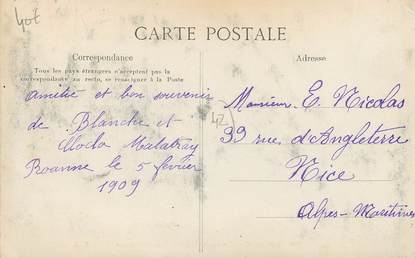 40t
CARTE POSTALE
Correspondance
Tous les pays étrangers n'acceptent pas la
correspondance au recto, se renseigner à la Poste
Amitié et bon souvenir
de Blanche et
Cloclo Malatray
Roanne le 5 février
1909
Adresse
Monsieur E. Nicolas
42
39 rue d'Angleterre
Nice
Alpes-Maritimes